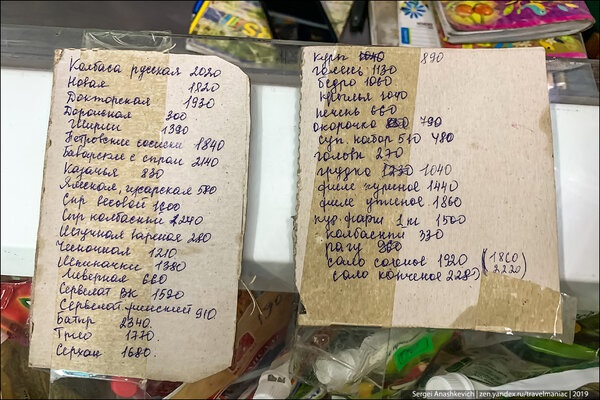 Колбаса русская 2020
Новая 1820
Докторская 1930
Дорожная 300
Ширли 1390
Петровские сосиски 1840
Баварские с сыром 2140
Казачья 830
Ямская, гусарская 580
Сыр весовой 1200
Сыр колбасный 2240
Штучная вареная 280
Чесночная 1210
Шпикачки 1380
Ливерная 660
Сервелат ВК 1520
Сервелат финский 910
Батыр 2340.
Трио 1770.
Серхан 1680.
куры 890
голень 1130
бедро 1060
крылья 1040
печень 660
окорочка 790
суп. набор 510 480
головы 270
грудка 1230 1040
филе куриное 1440
филе утиное 1860
кур. фарш 1 кг 1500
колбасный 330
рагу 960
сало соленое 1920 (1800
сало копченое 2280 2220)
Sergei Anashkevich | zen.yandex.ru/travelmaniac | 2019